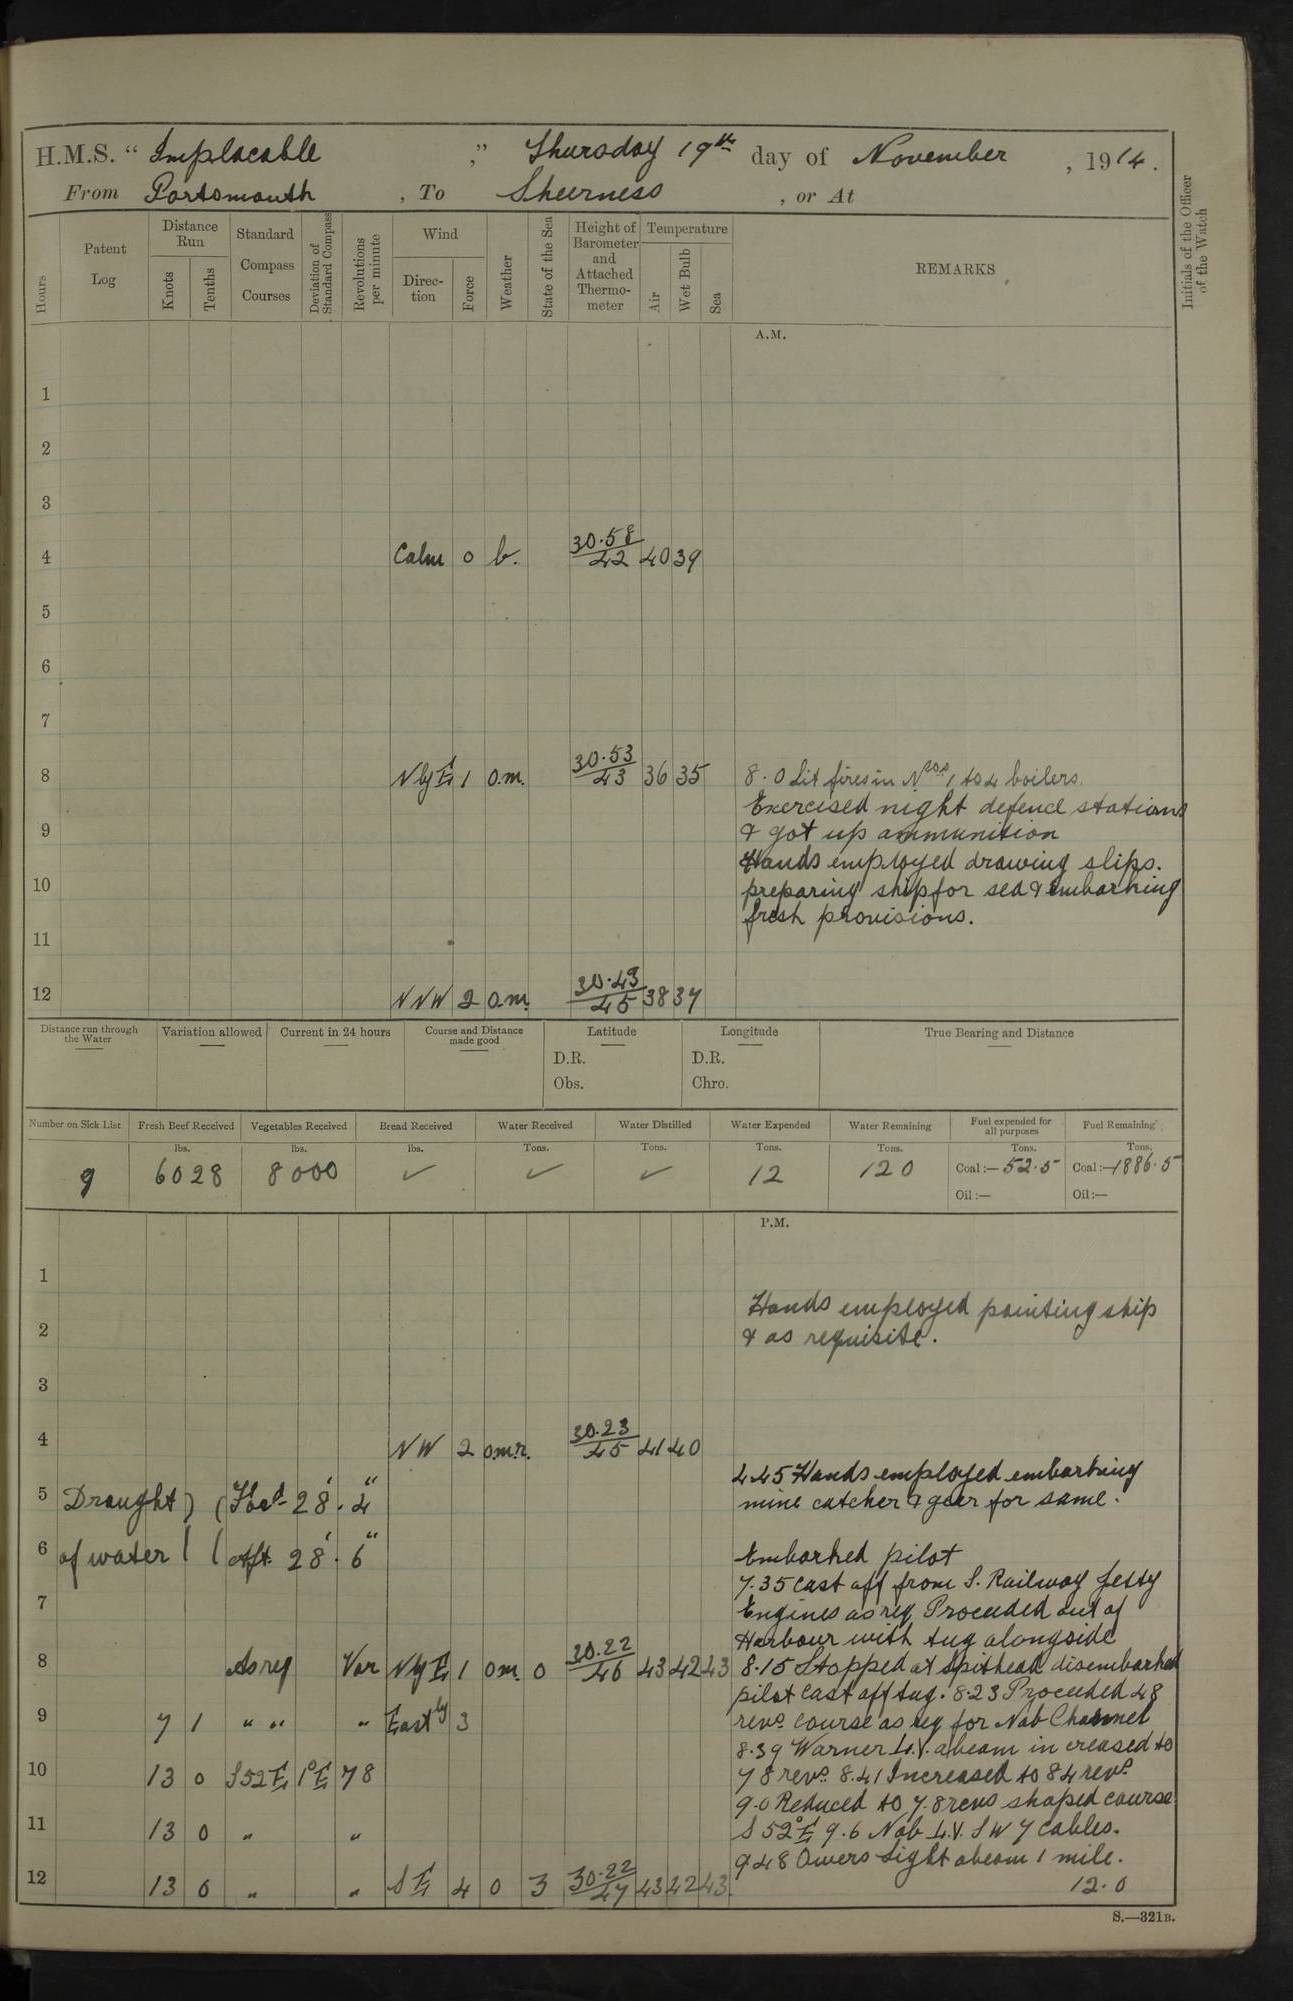 H.M.S. " Implacable ," Thursday 19th day of November , 1914.
From Portsmouth , To Sheerness , or At
Hours
Patent Log
Distance Run
Knots
Tenths
Standard Compass Courses
Deviation of Standard Compass
Revolutions per minute
Wind
Direction
Force
Weather
State of the Sea
Height of Barometer and Attached Thermometer
Temperature
Air
Wet Bulb
Sea
REMARKS
Initials of the Officer of the Watch
A.M.
1
2
3
4 Calm 0 b. 30.58/42 40 39
5
6
7
8 NbyE 1 o.m. 30.53/43 36 35 8.0 Lit fires in Nos 1 to 4 boilers.
Exercised night defence stations
9 & got up ammunition
Hands employed drawing slips.
10 preparing ship for sea & embarking
fresh provisions.
11
12 NNW 2 o.m. 30.43/45 38 37
Distance run through the Water
Variation allowed
Current in 24 hours
Course and Distance made good
Latitude
D.R.
Obs.
Longitude
D.R.
Chro.
True Bearing and Distance
Number on Sick List Fresh Beef Received Vegetables Received Bread Received Water Received Water Distilled Water Expended Water Remaining Fuel expended for all purposes Fuel Remaining
lbs. lbs. lbs. Tons. Tons. Tons. Tons. Tons. Tons.
9 6028 8000 ✓ ✓ ✓ 12 120 Coal:— 52.5 Coal:— 1886.5
Oil:— Oil:—
P.M.
1
Hands employed painting ship
2 & as requisite.
3
4 NW 2 o.m.r. 30.23/45 41 40
4 45 Hands employed embarking
5 Draught ) ( For'd 28'. 4" mine catcher & gear for same.
6 of water ( ( Aft. 28'. 6" Embarked pilot
7.35 Cast off from S. Railway Jetty
7 Engines as req Proceeded out of
Harbour with tug alongside
8 As req Var NbyE 1 o.m. 0 30.22/46 43 42 43 8.15 Stopped at Spithead disembarked
pilot cast off tug. 8.23 Proceeded 48
9 7 1 " " " Eastly 3 revs. course as req for Nab Channel
8.39 Warner L.V. abeam in creased to
10 13 0 S52E 1°E 78 78 revs. 8.41 Increased to 84 revs.
9.0 Reduced to 7.8 revs shaped course
11 13 0 " " S 52°E 9.6 Nab L.V. SW 7 cables.
9 48 Owers Light abeam 1 mile.
12 13 0 " " SE 4 0 3 30.22/47 43 42 43 12.0
S.—321B.